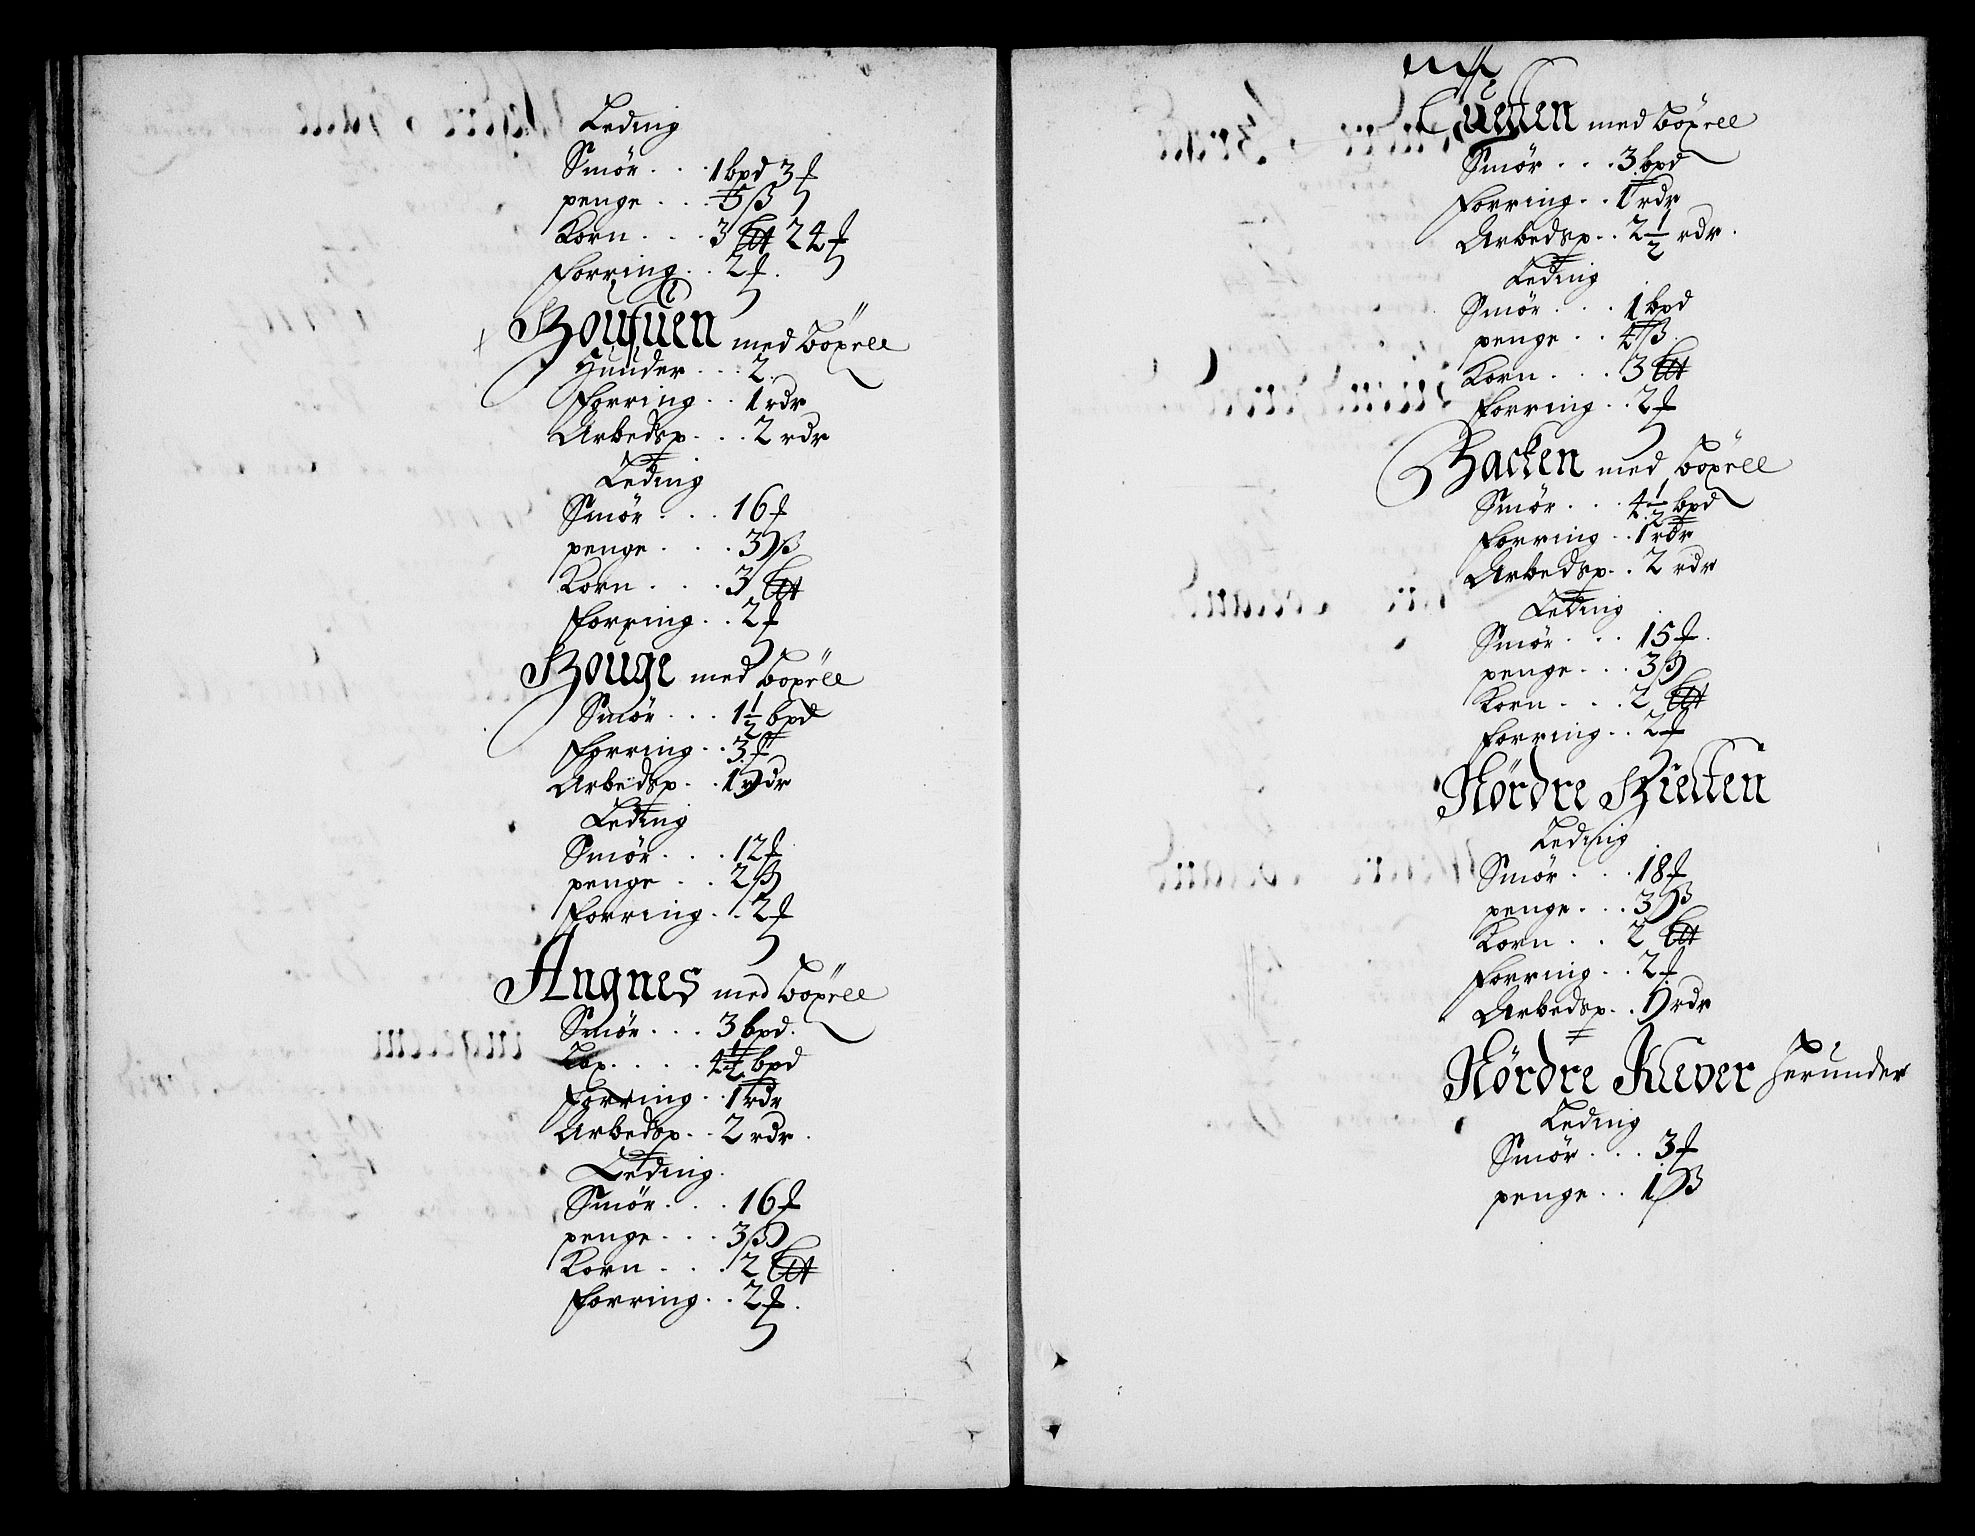 Leding
Smör . . . 1 bpd 3 ƒ
penge . . . 5 β
Korn . . . 3 ƒ 24 ƒ
Forring . . 2 ƒ.
Boufuen med böxell
Huuder . . . 2.
Forring . . 1 rdr
Arbedsp. . . 2 rdr
Leding
Smör . . . 16 ƒ
penge . . . 3 β
Korn . . . 3
Forring . . 2 ƒ
Bouge med böxell
Smör . . . 1½ bpd
Forring . . 3 ƒ
Arbedsp. . 1 rdr
Leding
Smör . . . 12 ƒ
penge . . 2 β
Forring . . 2 ƒ
Angnes med böxell
Smör . . . 3 bpd.
Lax . . . . bpd
Forring . . 1 rdr
Arbedsp. . 2 rdr.
Leding.
Smör . . . 16 ƒ
penge . . . 3 β
Korn . . . 2
Forring . . 2 ƒ.
med böxell
Smör . . . 3 bpd
Forring . . 1 rdr
Arbedsp. . 2½ rdr.
Leding
Smör . . . 1 bpd
penge . . 4 β.
Korn . . . 3
Forring . . 2 ƒ
Backen med böxell
Smör . . . 4½ bpd
Forring . . 1 rdr
Arbedsp. . 2 rdr
Leding
Smör . . . 15 ƒ.
penge . . . 3 β
Korn . . . 2
Forring . . 2 ƒ
Nördre Bielten
Leding
Smör . . . 18 ƒ
penge . . . 3 β
Korn . . 2
Forring . . 2 ƒ
Arbedsp. . 1 rdr
Nördre Klever herunder
Leding
Smör . . . 3 ƒ
penge . . 1 β